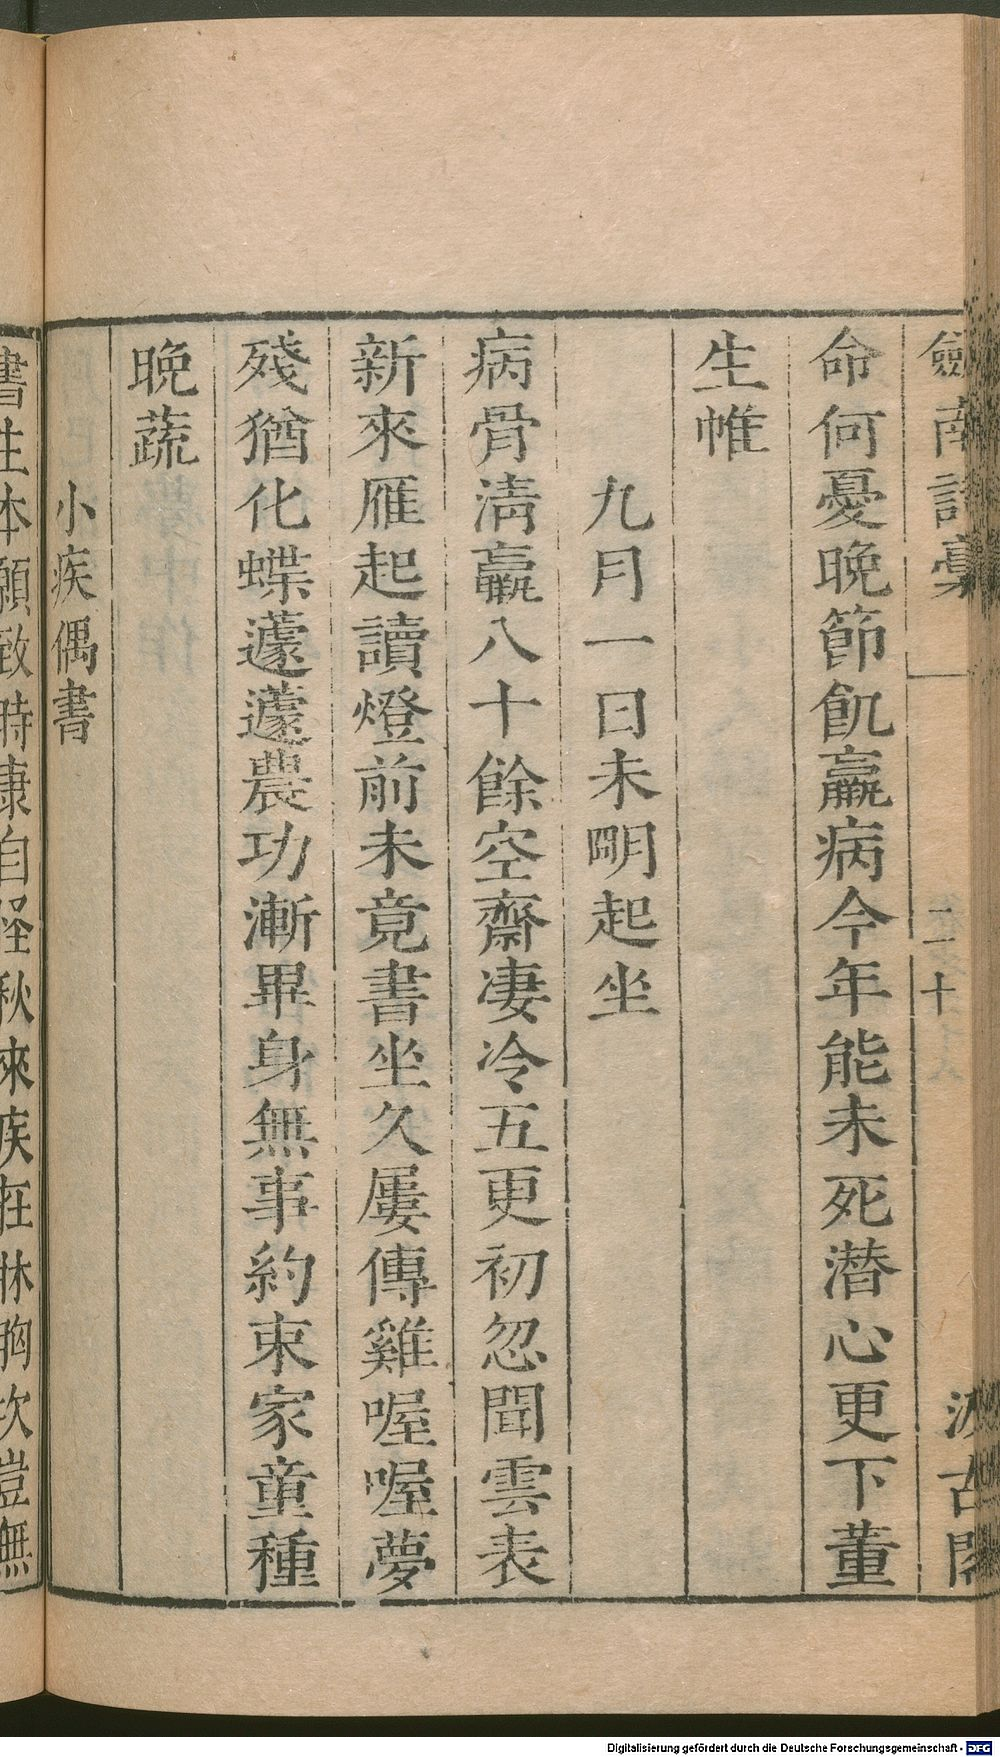 劒南詩稾
二十
汲古閣
命何憂晚節飢羸病今年能未死潛心更下董
生帷
九月一日未明起坐
病骨淸羸八十餘空齋凄冷五更初忽聞雲表
新來雁起讀燈前未竟書坐久屢傳雞喔喔夢
殘猶化蝶蘧蘧農功漸畢身無事約束家童種
晚蔬
小疾偶書
書生本願致時康自怪秋來疾在牀胸次豈無
Digitalisierung gefördert durch die Deutsche Forschungsgemeinschaft - DFG